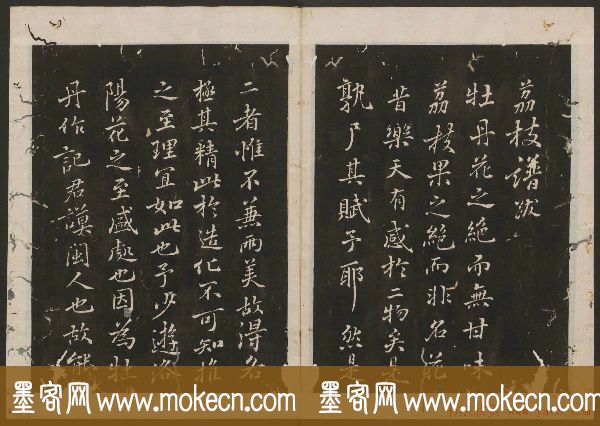 荔枝譜跋
牡丹花之絶而無甘味
荔枝果之絶而非名花
昔樂天有感於二物矣是
孰尸其賦予耶然是
二者惟不兼而美故得名
極其精此於造化不可知推
之至理宜如此也予少遊洛
陽花之至盛處也因為牡
丹作記君謨閩人也故能
墨客网 www.mokecn.com 墨客网 www.mokecn.com